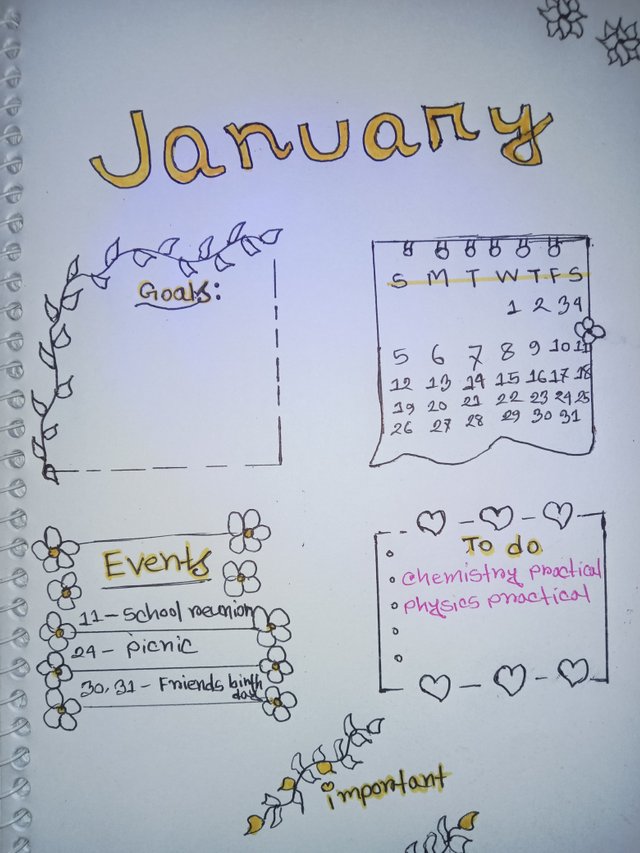 January
Goals:
S M T W T F S
1 2 3 4
5 6 7 8 9 10 11
12 13 14 15 16 17 18
19 20 21 22 23 24 25
26 27 28 29 30 31
Events
11 - School reunion
24 - picnic
30, 31 - Friends birth
day
To do
chemistry practical
physics practical
important